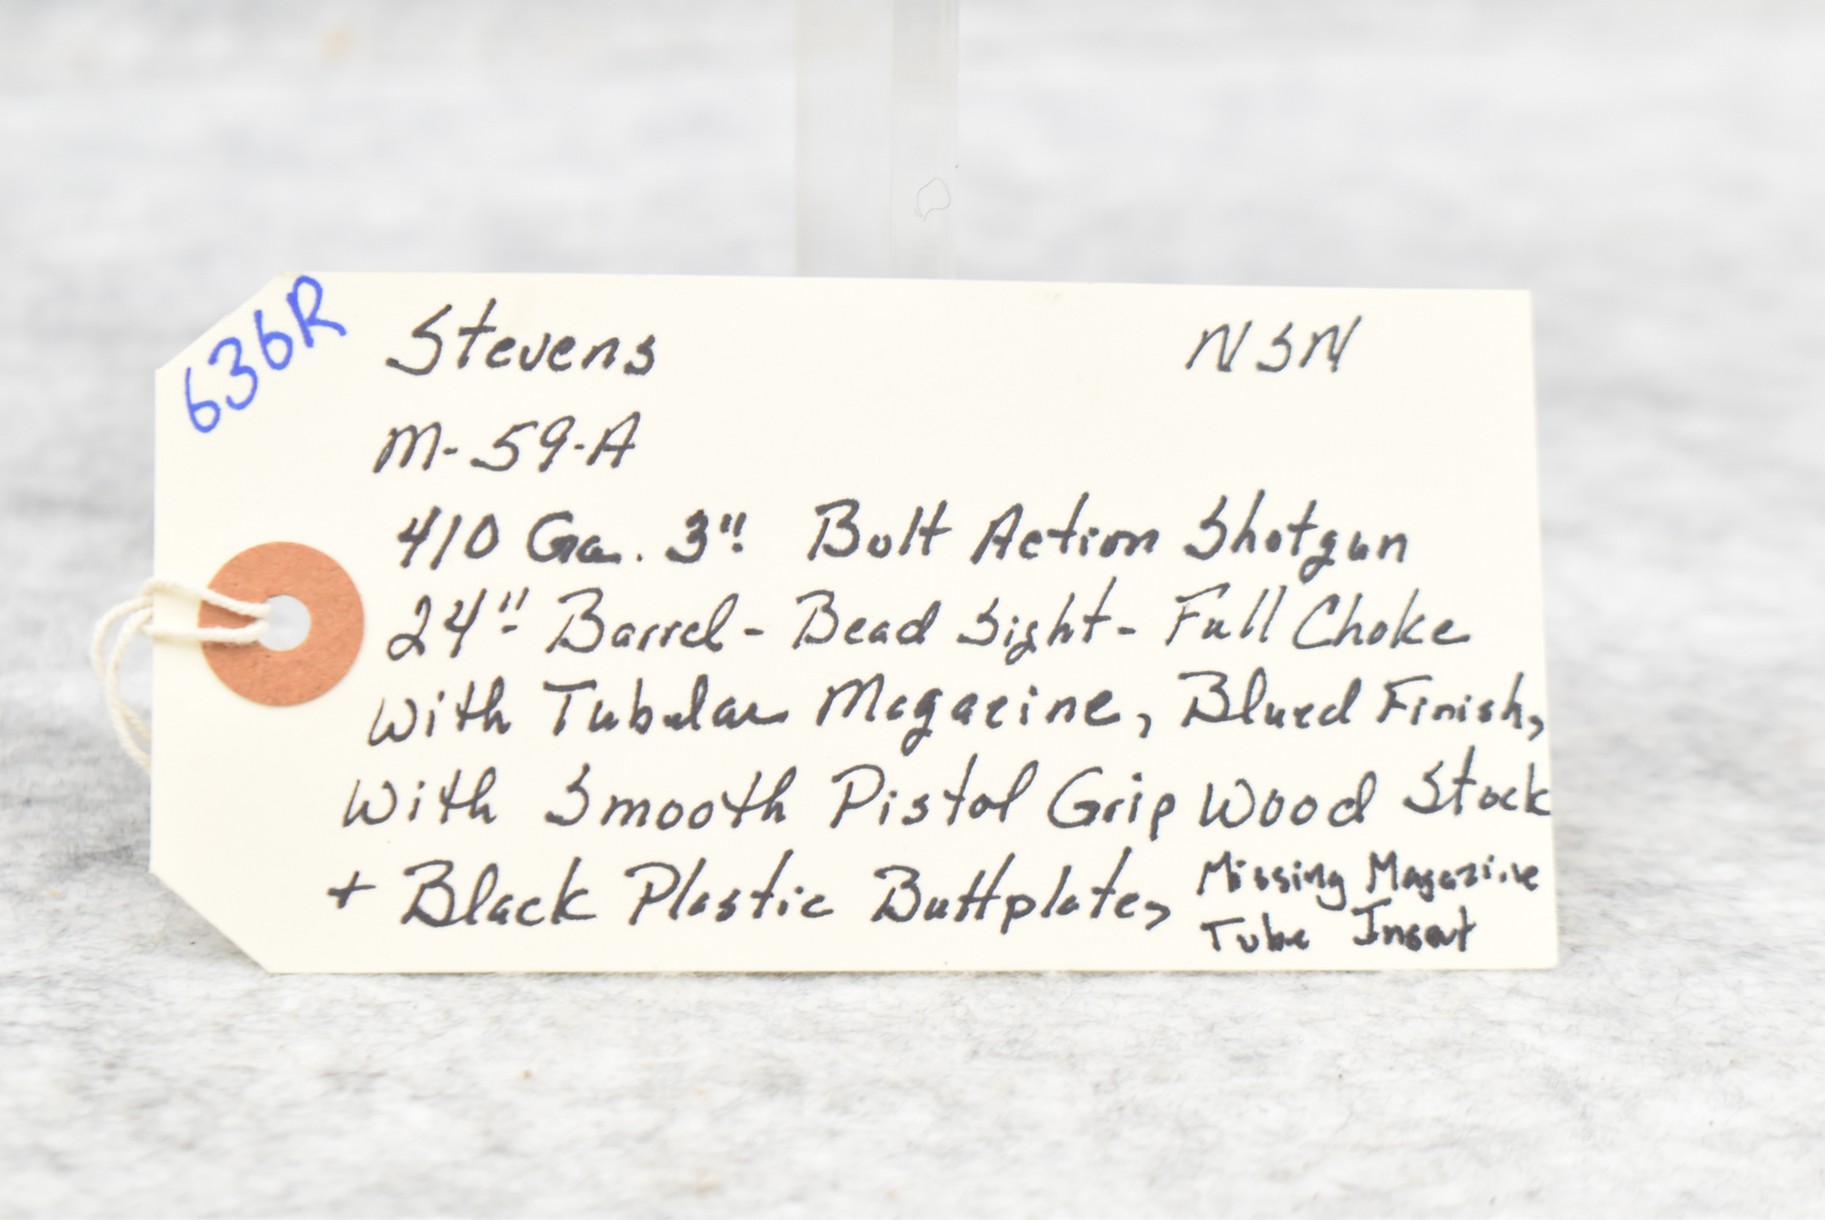 636R
Stevens NSN
M-59-A
410 Ga. 3" Bolt Action Shotgun
24" Barrel - Bead Sight - Full Choke
with Tubular Magazine, Blued Finish,
with Smooth Pistol Grip Wood Stock
+ Black Plastic Buttplate, Missing Magazine
Tube Insert